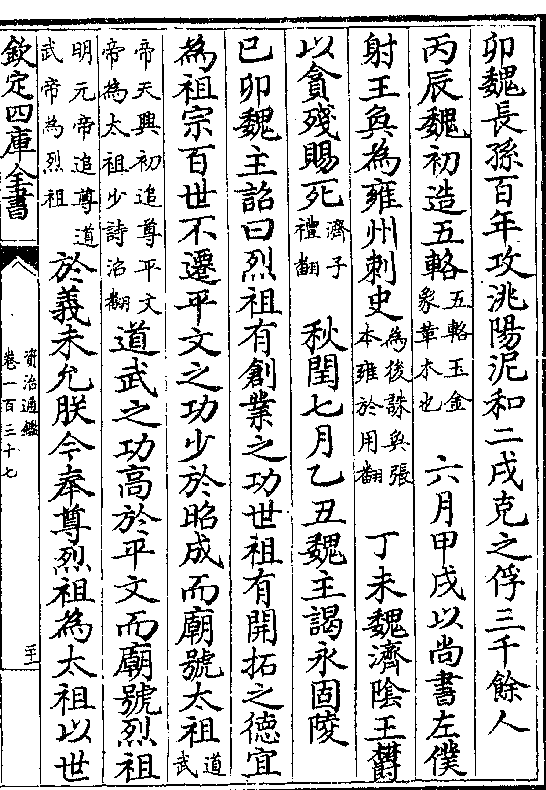 卯魏長孫百年攻洮陽泥和二戍克之俘三千餘人
丙辰魏初造五輅五輅玉金象革木也六月甲戌以尚書左僕
射王奐為雍州刺史為後誅奐張本雍於用翻丁未魏濟陰王鬱
以貪殘賜死濟子禮翻秋閏七月乙丑魏主謁永固陵
已卯魏主詔曰烈祖有創業之功世祖有開拓之德宜
為祖宗百世不遷平文之功少於昭成而廟號太祖道武
帝天興初追尊平文帝為太祖少詩沼翻道武之功高於平文而廟號烈祖
明元帝追尊道武帝為烈祖於義未允朕今奉尊烈祖為太祖以世
欽定四庫全書
資治通鑑
卷一百三十七